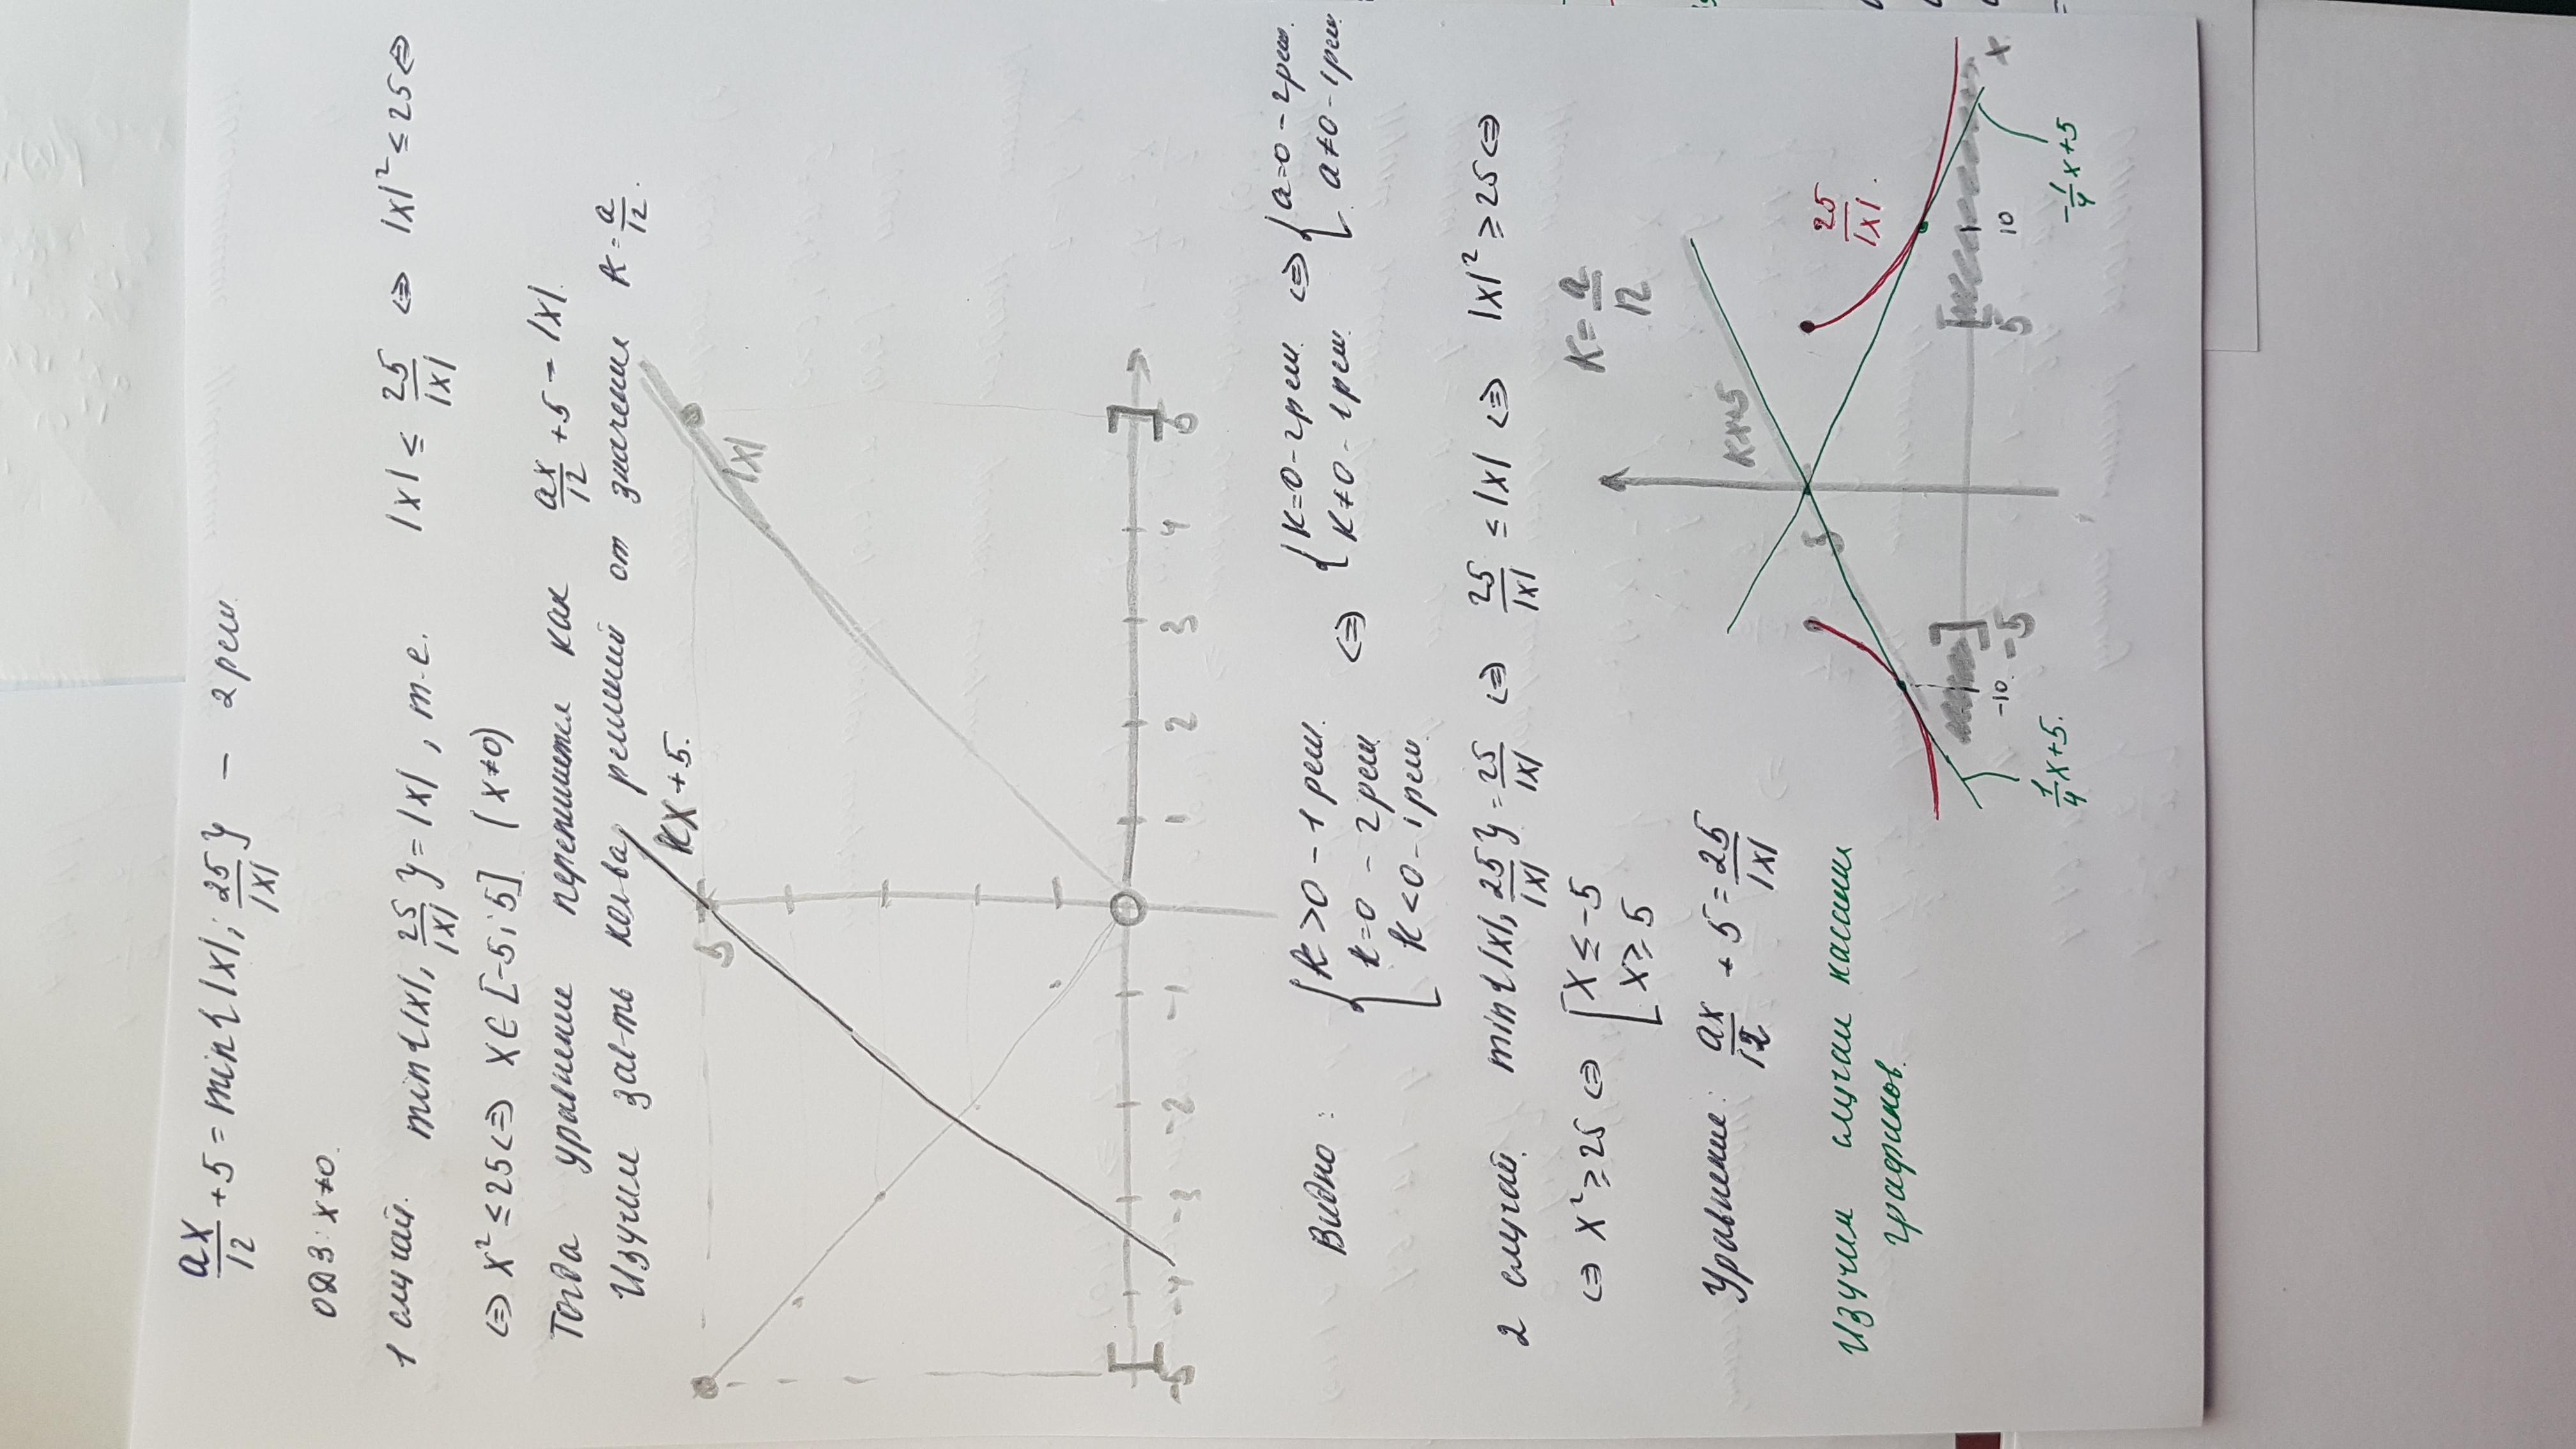 ax/12 + 5 = min{|x|; 25/|x|} – 2 реш.
ОДЗ: x≠0.
1 случай. min{|x|, 25/|x|} = |x|, т.е. |x| ≤ 25/|x| ⇔ |x|² ≤ 25 ⇔
⇔ x² ≤ 25 ⇔ x ∈ [-5; 5] (x≠0)
Тогда уравнение перепишется как ax/12 + 5 = |x|.
Изучим зав-ть кол-ва решений от значения k = a/12.
kx+5.
5
|x|
-5 -4 -3 -2 -1 0 1 2 3 4 5
Видно: { k>0 – 1 реш. k=0 – 2 реш k<0 – 1 реш. ⇔ { k=0 – 2 реш. k≠0 – 1 реш. ⇔ { a=0 – 2 реш. a≠0 – 1 реш.
2 случай. min{|x|, 25/|x|} = 25/|x| ⇔ 25/|x| ≤ |x| ⇔ |x|² ≥ 25 ⇔
⇔ x² ≥ 25 ⇔ [ x ≤ -5 x ≥ 5
k = a/12
Уравнение: ax/12 + 5 = 25/|x|
Изучим случаи касания
графиков.
kx+5
25/|x|.
5
-10. -5 5 10 x
1/4 x+5.
-1/4 x+5